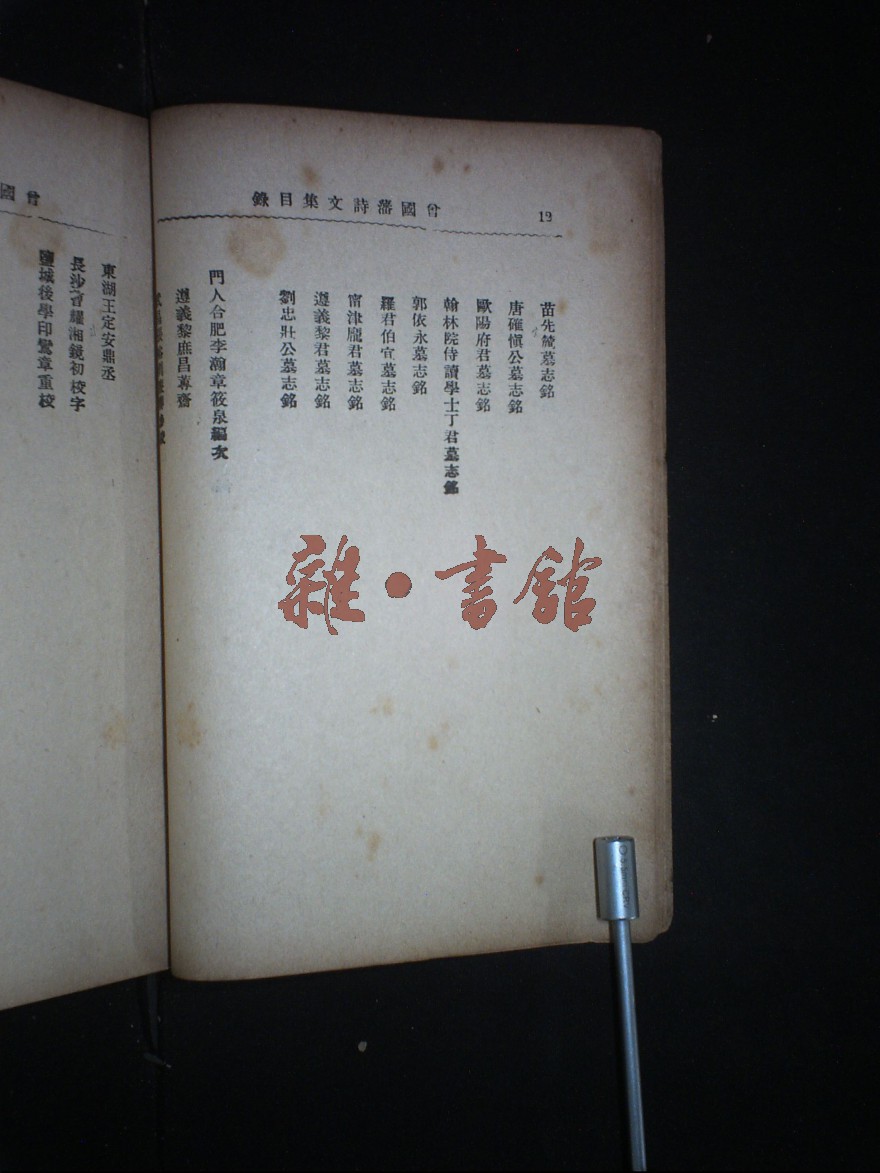 曾國藩詩文集目錄
12
苗先簏墓志銘
唐確慎公墓志銘
歐陽府君墓志銘
翰林院侍讀學士丁君墓志銘
郭依永墓志銘
羅君伯宜墓志銘
甯津龐君墓志銘
遵義黎君墓志銘
劉忠壯公墓志銘
門人合肥李瀚章筱泉編次
遵義黎庶昌蒓齋
曾國
東湖王定安鼎丞
長沙曹耀湘鏡初校字
鹽城後學印鸞章重校
雜·書館